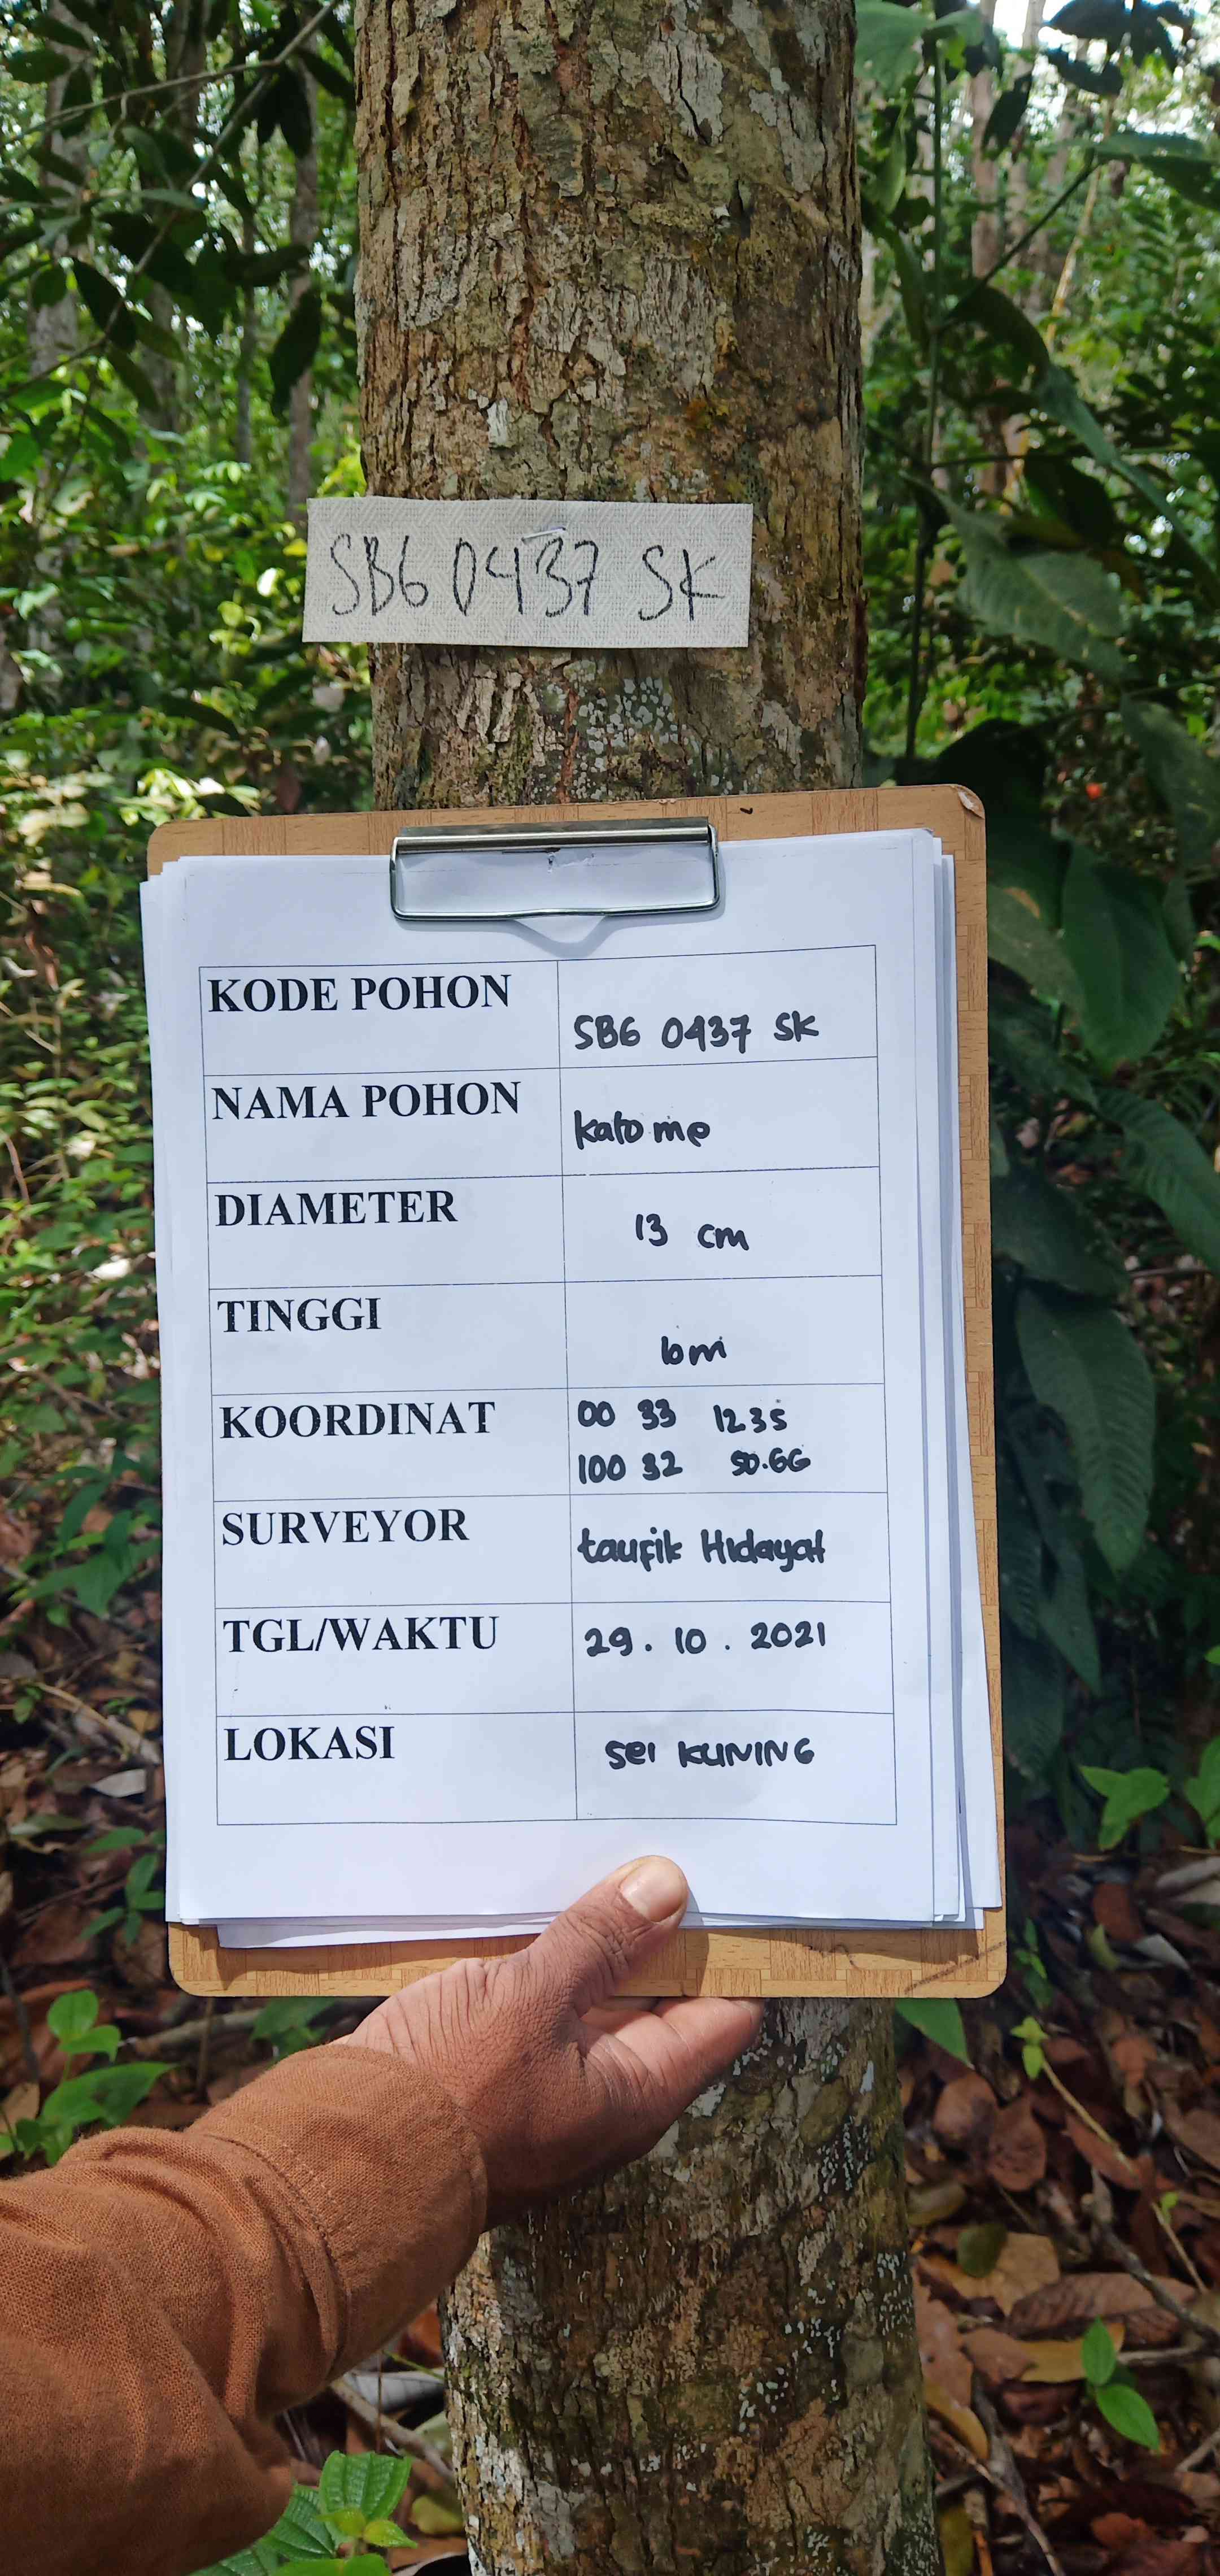 SB6 0437 SK
KODE POHON
SB6 0437 SK
NAMA POHON
kato me
DIAMETER
13 cm
TINGGI
10m
KOORDINAT
00 33 1235
100 32 50.66
SURVEYOR
taufik Hidayat
TGL/WAKTU
29.10.2021
LOKASI
sei KUNING